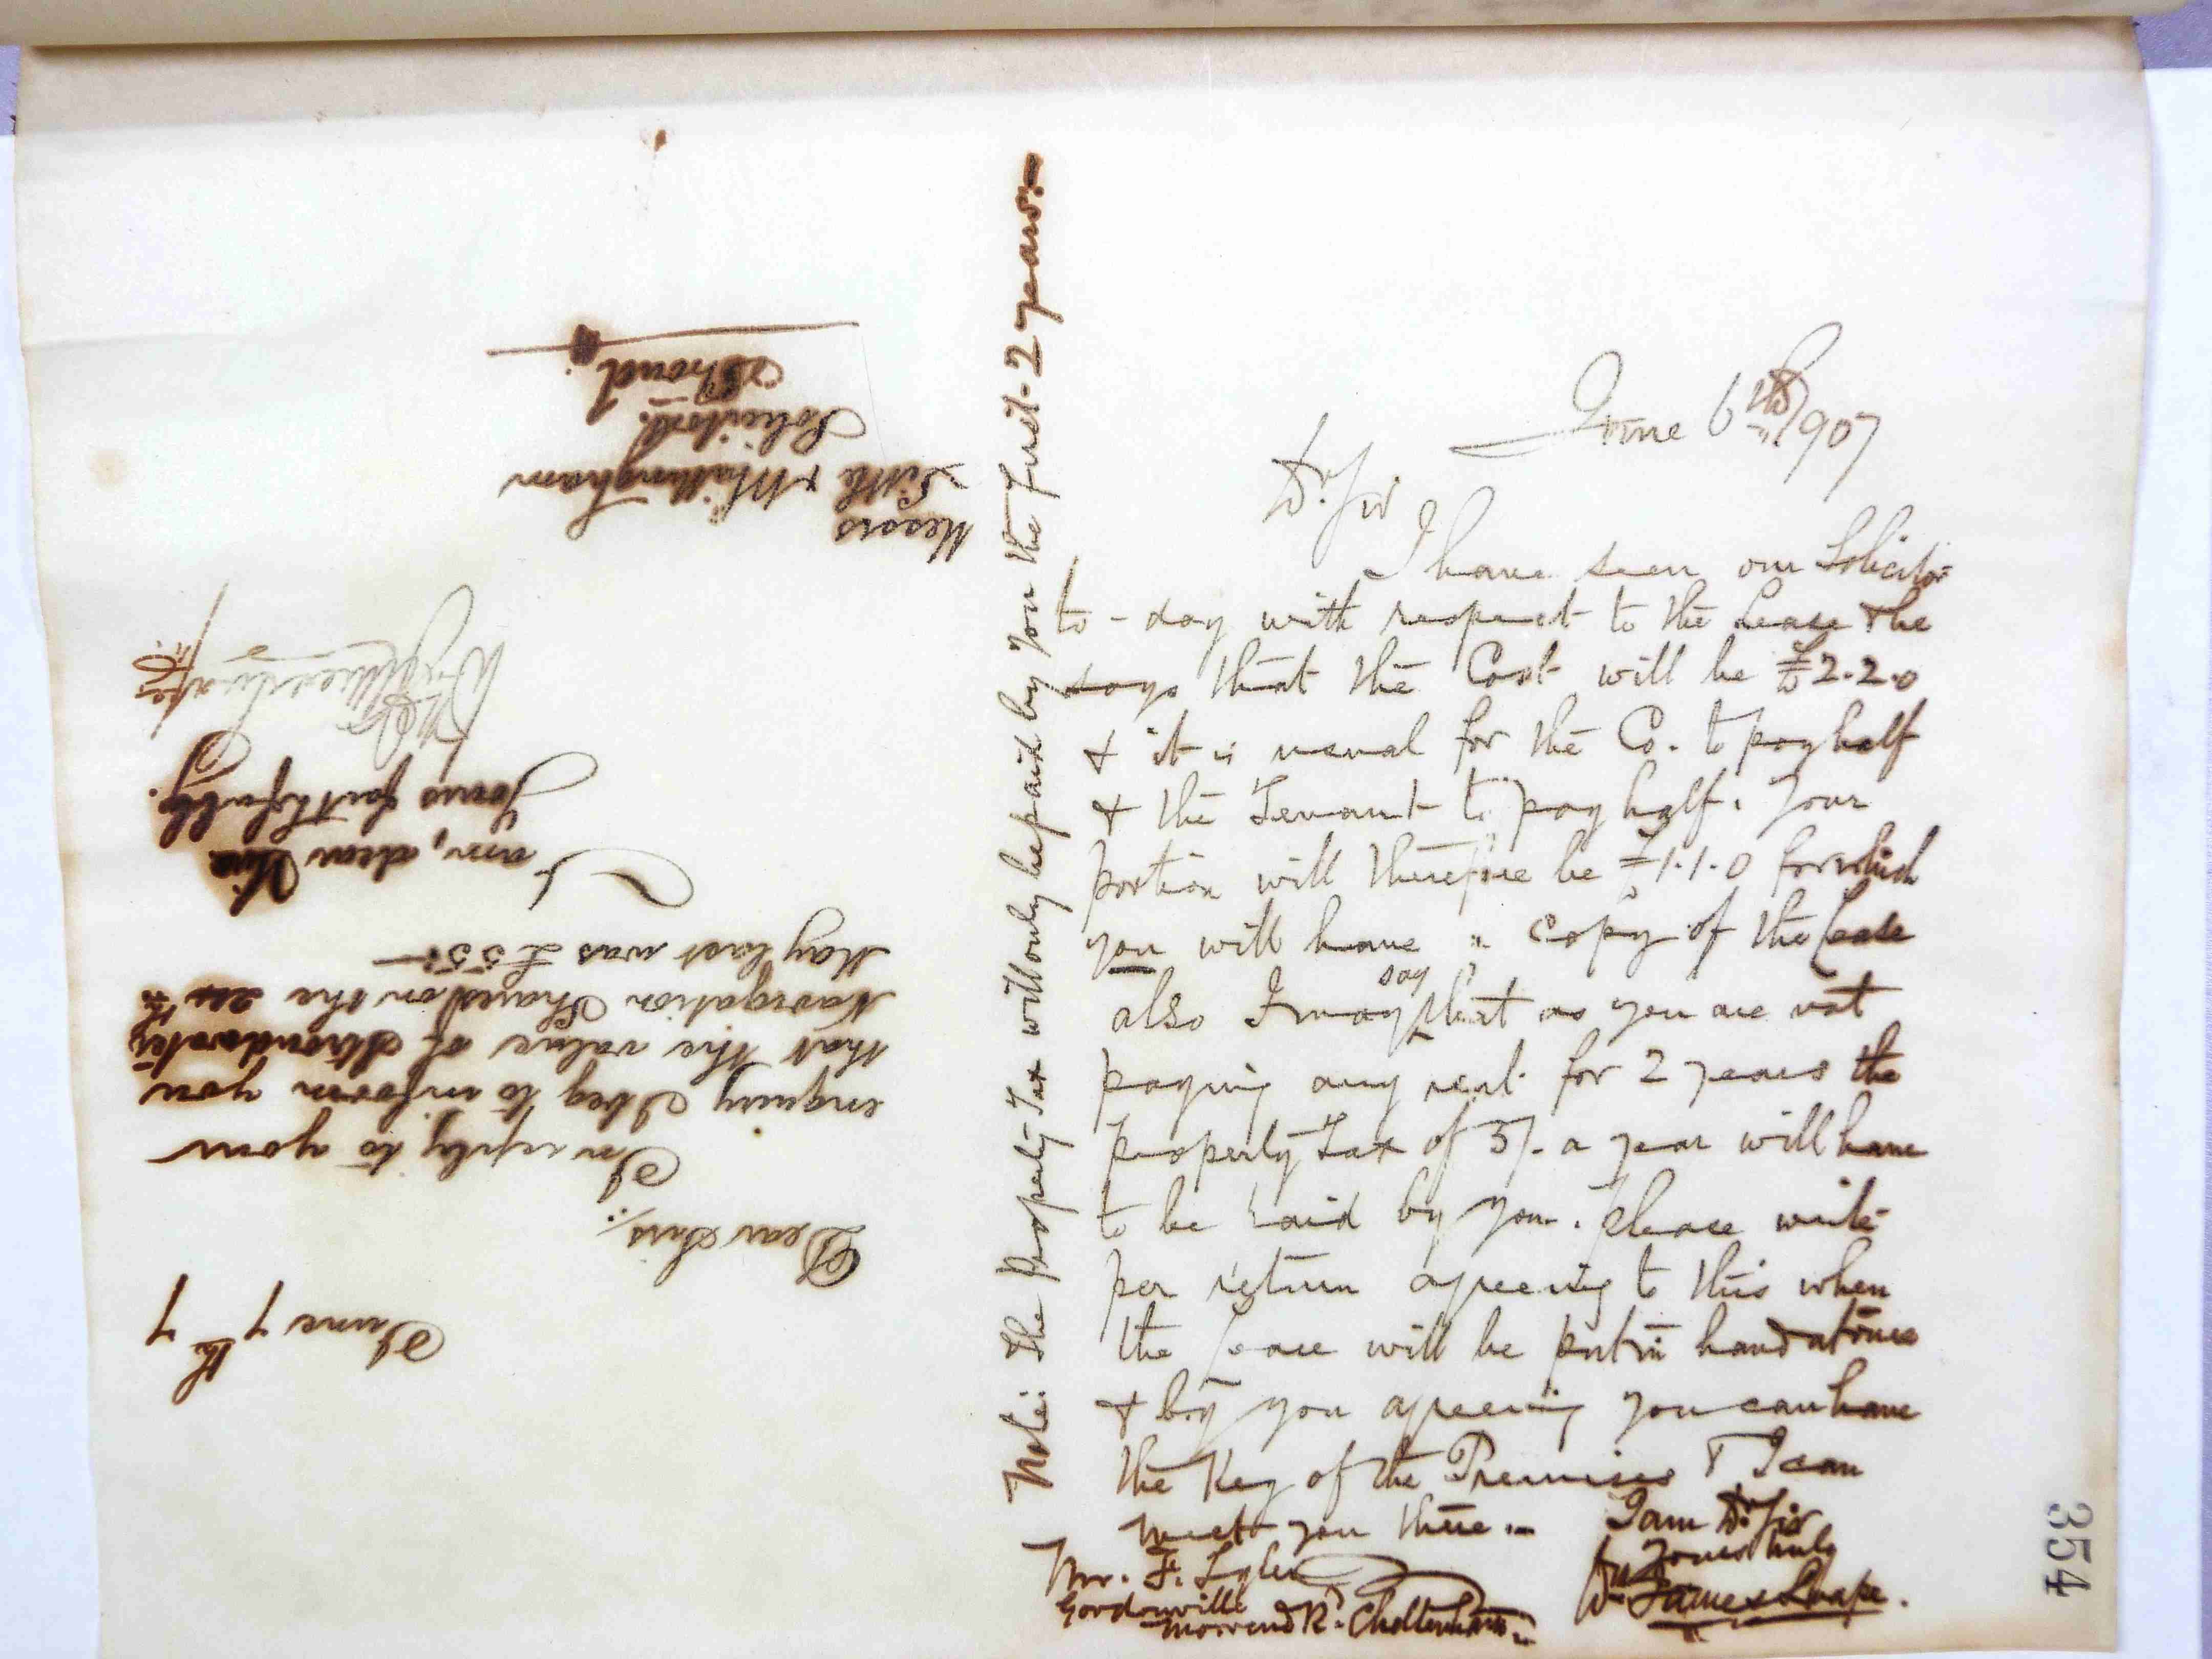 June 6th 1907
Dr. Sir
I have seen our Solicitor
to-day with respect to the Lease & he
says that the Cost will be £2.2.0
& it is usual for the Co. to pay half
& the Tenant to pay half. Your
portion will therefore be £1.1.0 for which
you will have a copy of the Lease
also I may say that as you are not
paying any rent for 2 years the
Property Tax of 5/- a year will have
to be paid by you. Please write
per return agreeing to this when
the Lease will be put in hand at once
& by you agreeing you can have
the Key of the Premises & I can
meet you there.
I am Dr. Sir
Yours truly
Wm. James Snape.
Mr. F. Lyler
Gordonville
R. Cheltenham
Note: The Property Tax will only be paid by you the First 2 years.
354
June 7th 7
Dear Sirs,
In reply to your
enquiry I beg to inform you
that the value of Stroudwater
Navigation Shares on the
May last was £55:—
I am, dear Sirs
Yours faithfully.
Wm James Snape
Messrs
Little & Mallingham
Solicitors.
Stroud